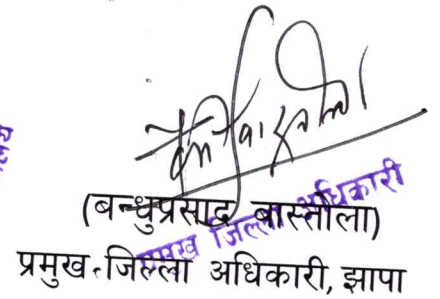 (बन्धुप्रसाद बास्तोला)
प्रमुख जिल्ला अधिकारी
प्रमुख जिल्ला अधिकारी, झापा